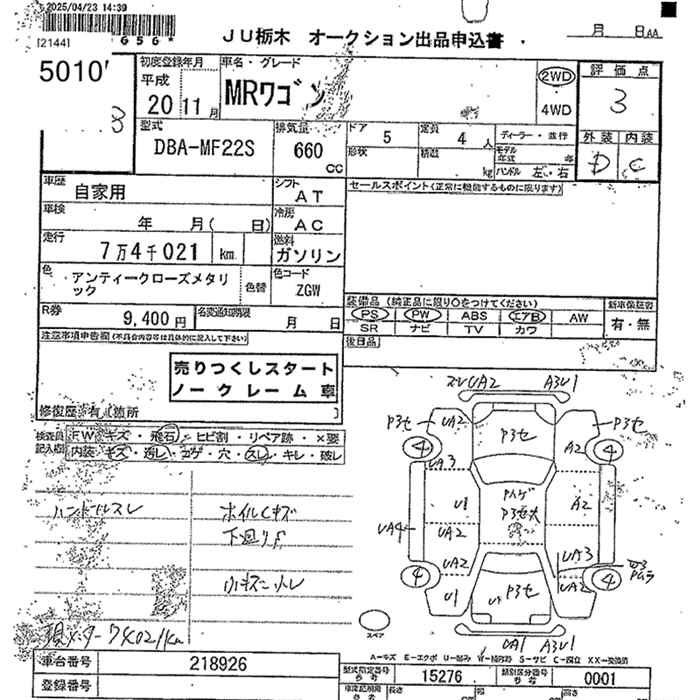 2025/04/23 14:39
[2144]
JU栃木 オークション出品申込書
月 日AA
5010
初度登録年月
平成
20 11月
車名・グレード
MRワゴン
2WD
4WD
評価点
3
外装 内装
D C
型式
DBA-MF22S
排気量
660
CC
ドア
5
定員
4人
形状
積載
kg
ディーラー・並行
モデル年式 年
ハンドル 左・右
車歴
自家用
シフト
AT
セールスポイント(正常に機能するものに限ります)
車検
年 月( 日)
冷房
AC
走行
7万4千021 km
燃料
ガソリン
色
アンティークローズメタリック
色替
色コード
ZGW
R券
9,400円
名変通知期限
月 日
装備品(純正品に限り○をつけてください)
PS PW ABS エアB AW
SR ナビ TV カワ
新車保証書
有・無
後日品
注意事項申告欄(不具合内容等は具体的に記入して下さい)
売りつくしスタート
ノークレーム車
修復歴 有(箇所 )
検査員記入欄
FW キズ・飛石・ヒビ割・リペア跡・×要
内装 キズ・汚レ・コゲ・穴・スレ・キレ・破レ
ハンドルスレ
ホイルCキズ
下廻りF
現メーター 74021km
UA2 A3U1
P3セ UA2 P3セ P3セ
4 A2 4
UA3
U1 P3セ大 A2
UA4 UA2
UA2 UA3
4 P3セ UA2 4
U1
UA1 A3U1
スペア
A-キズ E-エクボ U-凹み W-補修跡 S-サビ C-腐食 XX-交換済
車台番号
218926
登録番号
型式指定番号
参考
15276
類別区分番号
参考
0001
長さ
幅
高さ